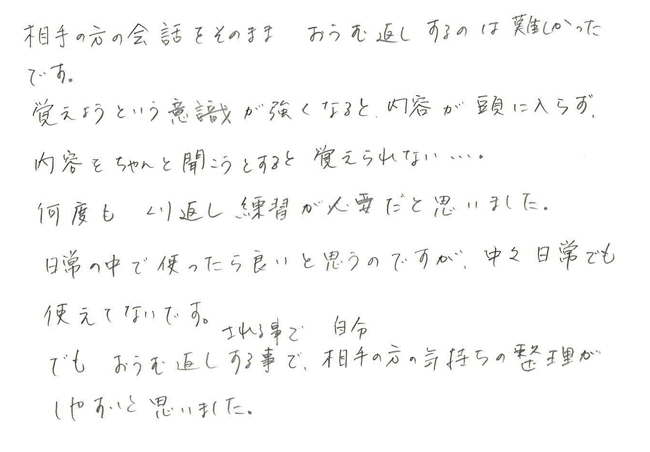 相手の方の会話をそのまま おうむ返しするのは難しかった
です。
覚えようという意識が強くなると、内容が頭に入らず、
内容をちゃんと聞こうとすると覚えられない…。
何度も くり返し練習が必要だと思いました。
日常の中で使ったら良いと思うのですが、中々日常でも
使えてないです。
される事で 自分
でも おうむ返しする事で、相手の方の気持ちの整理が
しやすいと思いました。